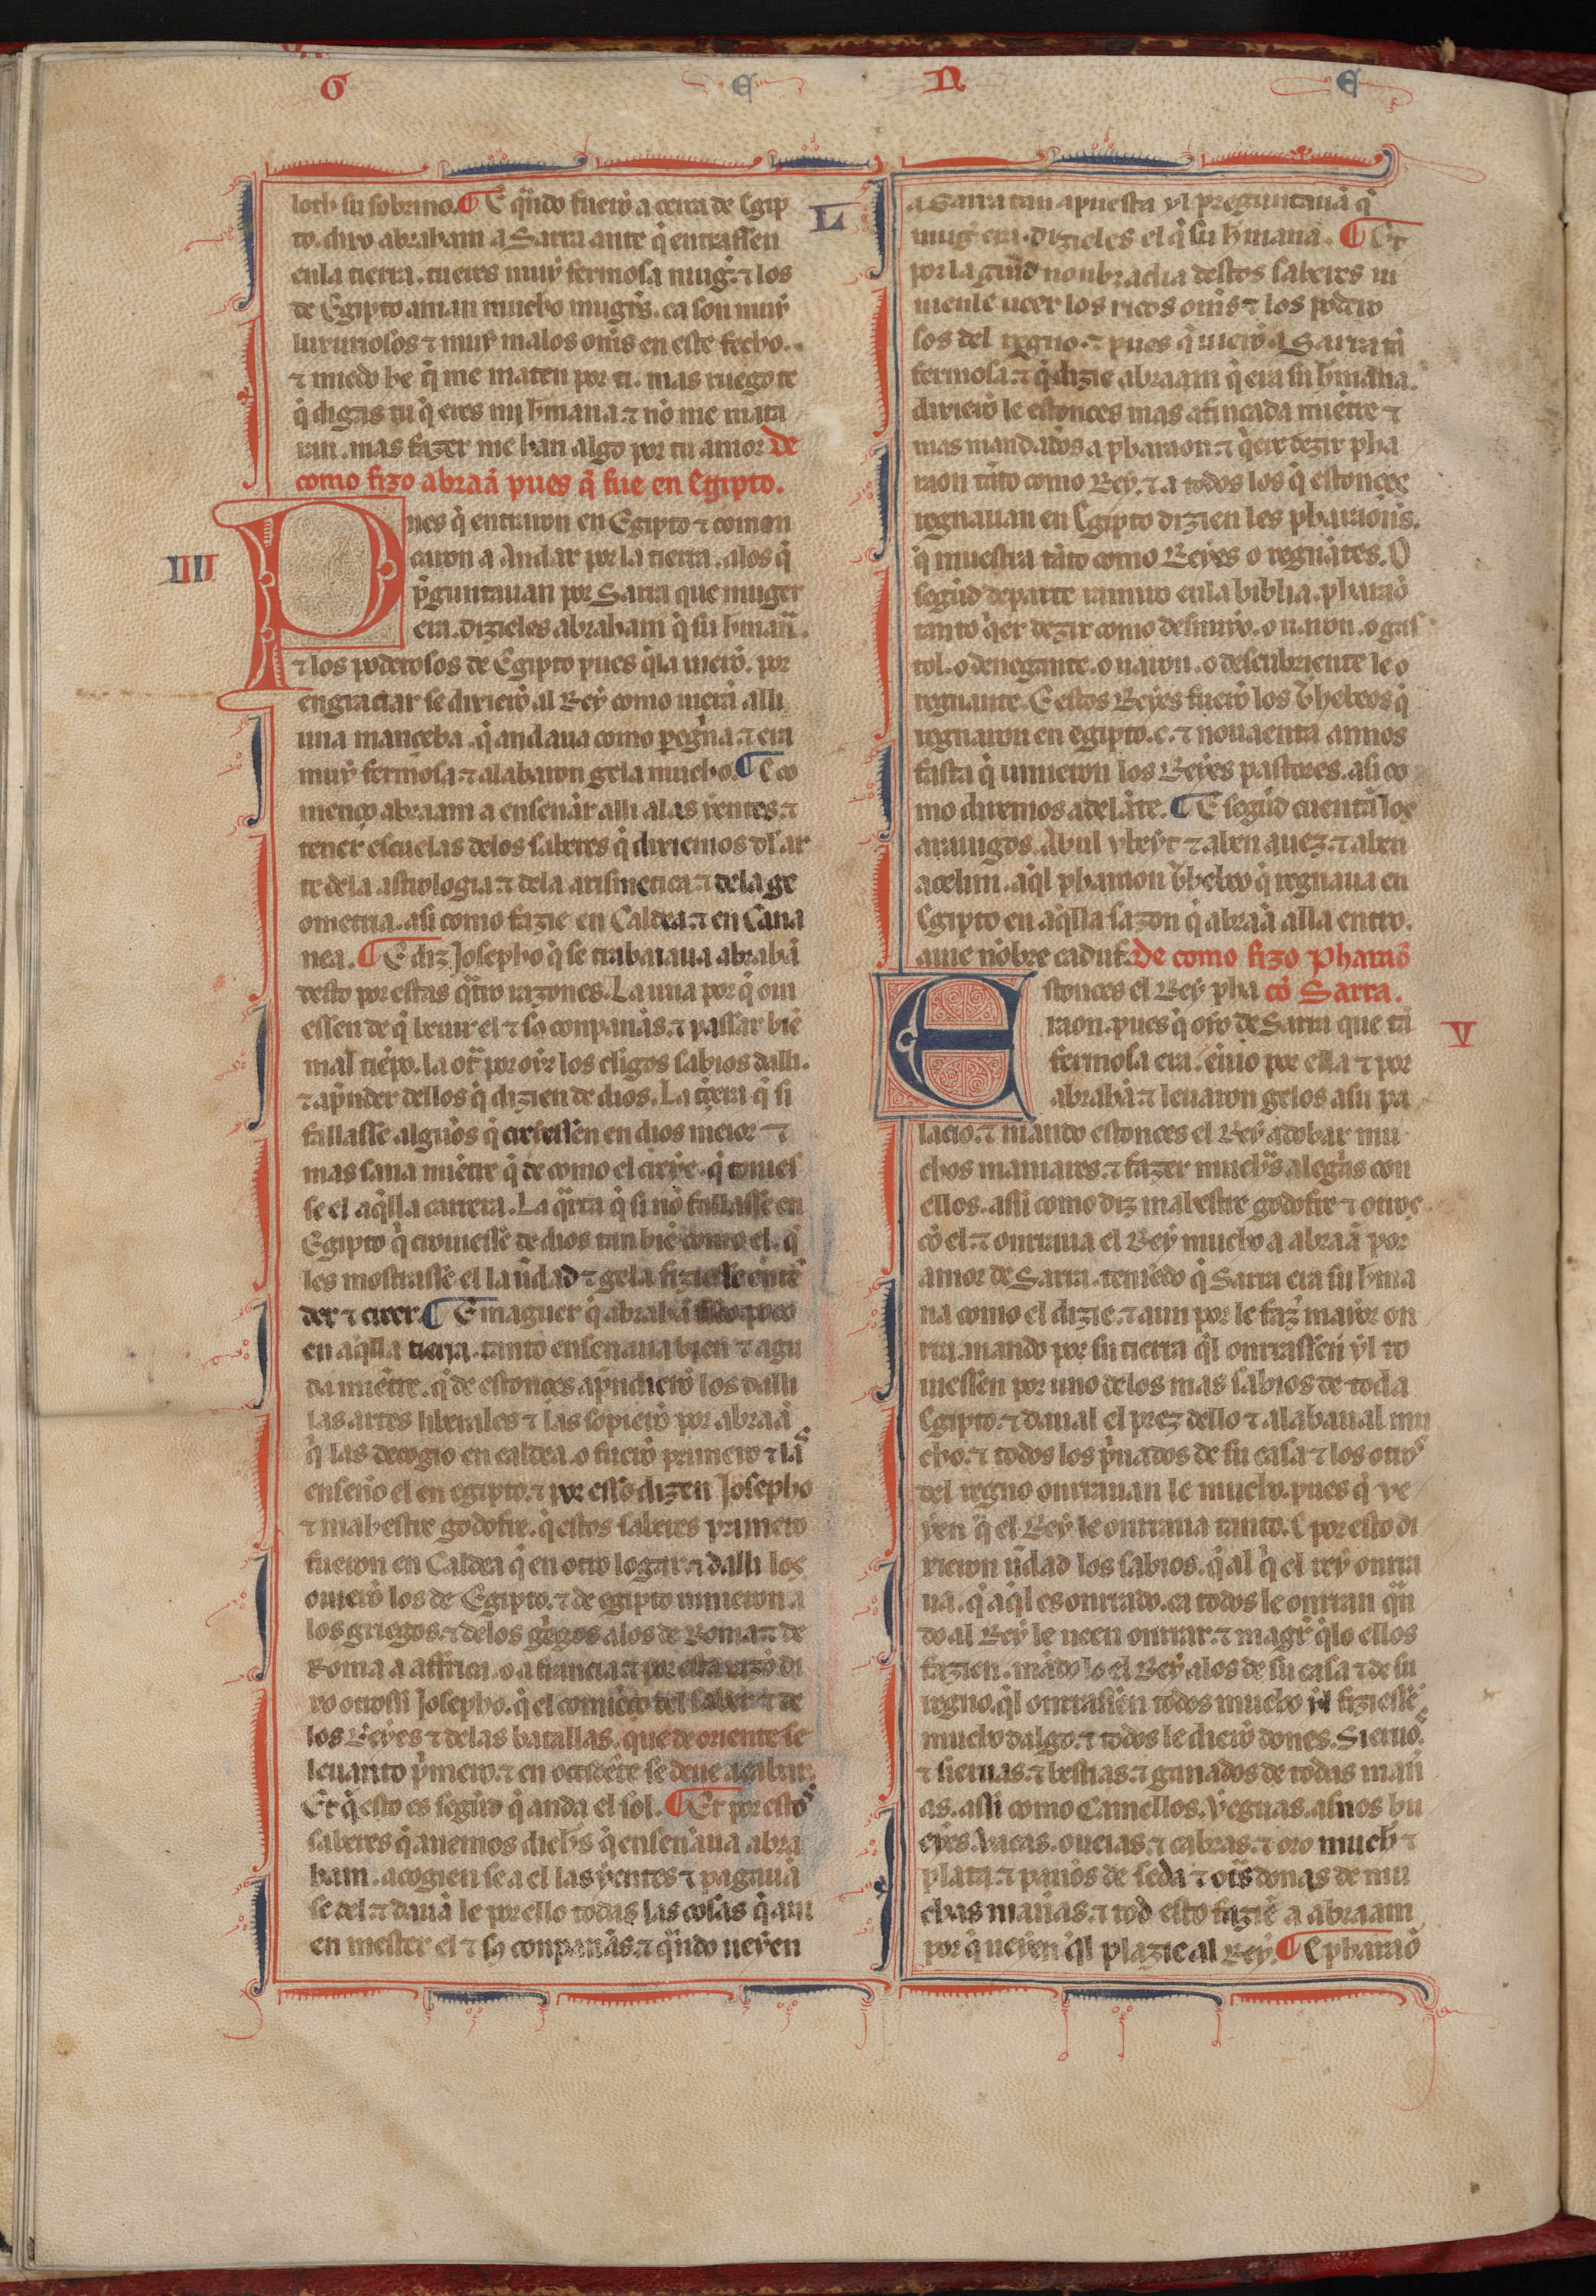 G E N E
loth su sobrino. ¶ E q̃ndo fuerõ a cerca de Egip
to. dixo abraham a Sarra ante q̃ entrassen
en la tierra. tu eres muy fermosa mug̃. ⁊ los
de Egipto aman mucho mugr̃s. ca son muy
luxuriosos ⁊ muy malos om̃s en este fecho.
⁊ miedo he q̃ me maten por ti. mas ruego te
q̃ digas tu q̃ eres mj h̃mana ⁊ nõ me mata
ran. mas fazer me han algo por tu amor De
como fizo abraã pues q̃ fue en Egipto.
IIII
Pues q̃ entraron en Egipto ⁊ comen
caron a andar por la tierra. alos q̃
p̃guntauan por Sarra que muger
era. dizieles abraham q̃ su h̃mañ.
⁊ los poderosos de Egipto pues q̃la uierõ. por
engraciar se dixierõ al Rey como uierã alli
una manceba. q̃ andaua como peg̃na ⁊ era
muy fermosa. ⁊ alabaron gela mucho. ¶ E co
menço abraam a ensenar alli alas yentes. ⁊
tener escuelas delos saberes q̃ dixiemos dl ar
te dela astrologia. ⁊ dela arismetica ⁊ de la ge
ometria. asi como fazie en Caldea. ⁊ en Cana
nea. ¶ E diz Josepho q̃ se trabaiaua abrahã
desto por estas q̃tro razones. La una por q̃ oui
essen de q̃ beuir el ⁊ sꝯ conpañas. ⁊ passar biẽ
mal tiẽpo. la ot̃ por oyr los cl̃igos sabios dalli.
⁊ ap̃nder dellos q̃ dizien de dios. La t̃cera q̃ si
fallasse algũos q̃ crefessen en dios meior ⁊
mas sana miẽtre q̃ de como el creye. q̃ touies
se el aq̃lla carrera. La q̃rta q̃ si nõ fallasse en
Egipto q̃ crouiesse de dios tan biẽ como el. q̃
les mostrasse el la ũdad ⁊ gela fiziesse entẽ
der ⁊ creer. ¶ E maguer q̃ abrahã uisco poco
en aq̃lla tierra. tanto ensenaua bien ⁊ agu
da miẽtre. q̃ de estonces ap̃ndierõ los dalli
las artes liberales ⁊ las sopierõ por abraã
q̃ las decogio en caldea. o fuerõ primero ⁊ las
enseño el en egipto. ⁊ por esso dizen Josepho
⁊ mahestre godofre. q̃ estos saberes primero
fueron en Caldea q̃ en otro logar. ⁊ dalli los
ouierõ los de Egipto. ⁊ de egipto uinieron a
los griegos. ⁊ delos g̃egos alos de Roma. ⁊ de
Roma a affrica. o a francia. ⁊ por esta razõ di
xo otrossi Josepho. q̃ el comiẽço del saber ⁊ de
los Reyes ⁊ delas batallas. que de oriente se
leuanto p̃mero. ⁊ en occidẽte se deue acabar.
Et q̃ esto es segũd q̃ anda el sol. ¶ Et por estos
saberes q̃ auemos dich̃s q̃ ensenaua abra
ham. acogien se a el las yentes ⁊ pagauã
se del. ⁊ dauã le por ello todas las cosas q̃ aui
en mester el ⁊ sꝯ conpañas. ⁊ q̃ndo ueyen
L
a Sarra tan apuesta yl preguntauã q̃
mug̃ era. dizieles el q̃ su h̃mana. ¶ Et
por la grãd nonbradia destos saberes ui
nienle ueer los ricos om̃s ⁊ los podero
sos del regno. ⁊ pues q̃ uierõ a Sarra tã
fermosa. ⁊ q̃ dizie abraam q̃ era su h̃mana.
dixierõ le estonces mas afincada miẽtre ⁊
mas mandados a pharaon. ⁊ q̃ere dezir pha
raon tãto como Rey. ⁊ a todos los q̃ estonces
regnauan en Egipto dizien les pharaons.
q̃ muestra tãto como Reyes o regnãtes. O
segũd departe ramiro en la biblia. pharaõ
tanto q̃er dezir como desnuyo. o uaron. o gas
tol. o denegante. o uaron. o descubriente le o
regnante. E estos Reyes fuerõ los thebeos q̃
regnaron en egipto. c. ⁊ nouaenta annos
fasta q̃ uinieron los Reyes pastores. asi co
mo diremos adelãte. ¶ E segũd cuentã los
arauigos. Abul ybeyt ⁊ aben auez. ⁊ aben
acelim. aq̃l pharaon thebeo q̃ regnaua en
Egipto en aq̃lla sazon q̃ abraã alla entro.
auie nõbre cadut. De como fizo Pharaõ
cõ Sarra.
V
Estonces el Rey pha
raon. pues q̃ oyo de Sarra que tã
fermosa era. enuio por ella ⁊ por
abrahã. ⁊ leuaron gelos a su pa
lacio. ⁊ mando estonces el Rey adobar mu
chos maniares. ⁊ fazer much̃s aleg̃as con
ellos. assi como diz mahestre godofre ⁊ otros
cõ el. ⁊ onrraua el Rey mucho a abraã por
amor de Sarra. teniẽdo q̃ Sarra era su h̃ma
na como el dizie. ⁊ aun por le faz̃ mayor on
rra. mando por su tierra q̃l onrrassen yl to
uiessen por uno delos mas sabios de toda
Egipto. ⁊ daual el prez dello ⁊ alabaual mu
cho. ⁊ todos los p̃uados de su casa ⁊ los otros
del regno onrrauan le mucho. pues q̃ ve
yen q̃ el Rey le onrraua tanto. E por esto di
xieron ũdad los sabios. q̃ al q̃ el rey onrra
ua. q̃ aq̃l es onrrado. ca todos le onrran q̃n
do al Rey le ueen onrrar. ⁊ mag̃r q̃lo ellos
fazien. mãdo lo el Rey alos de su casa ⁊ de su
regno. q̃l onrrassen todos mucho yl fiziessẽ
mucho dalgo. ⁊ todos le dierõ dones. Sieruos
⁊ sieruas. ⁊ bestias. ⁊ ganados de todas mañ
as. assi como Camellos. yeguas. asnos bu
eyes. Vacas. oueias. ⁊ cabras. ⁊ oro much̃ ⁊
plata. ⁊ paños de seda ⁊ ot̃s donas de mu
chas mañas. ⁊ tod esto faziẽ a abraam
por q̃ ueyen q̃l plazie al Rey. ¶ E pharaõ